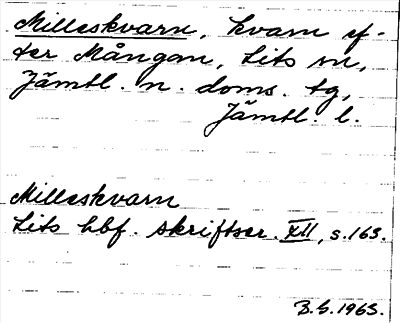 Milleskvarn, kvarn ef-
ter Mångån, Lits sn,
Jämtl. n. doms. tg,
Jämtl. l.
Milleskvarn
Lits hbf. skriftser. XII, s.163.
B.S.1963.